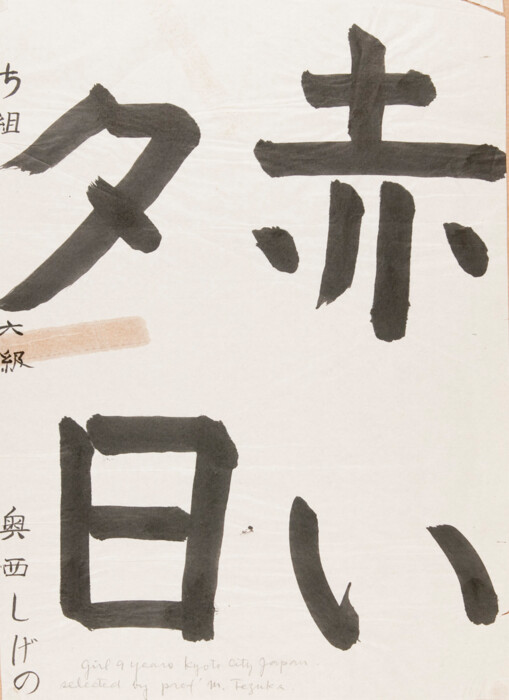 赤い
夕日
ち組
六級
奥西しげの
Girl 9 years Kyoto City Japan
selected by prof M. Tezuka.